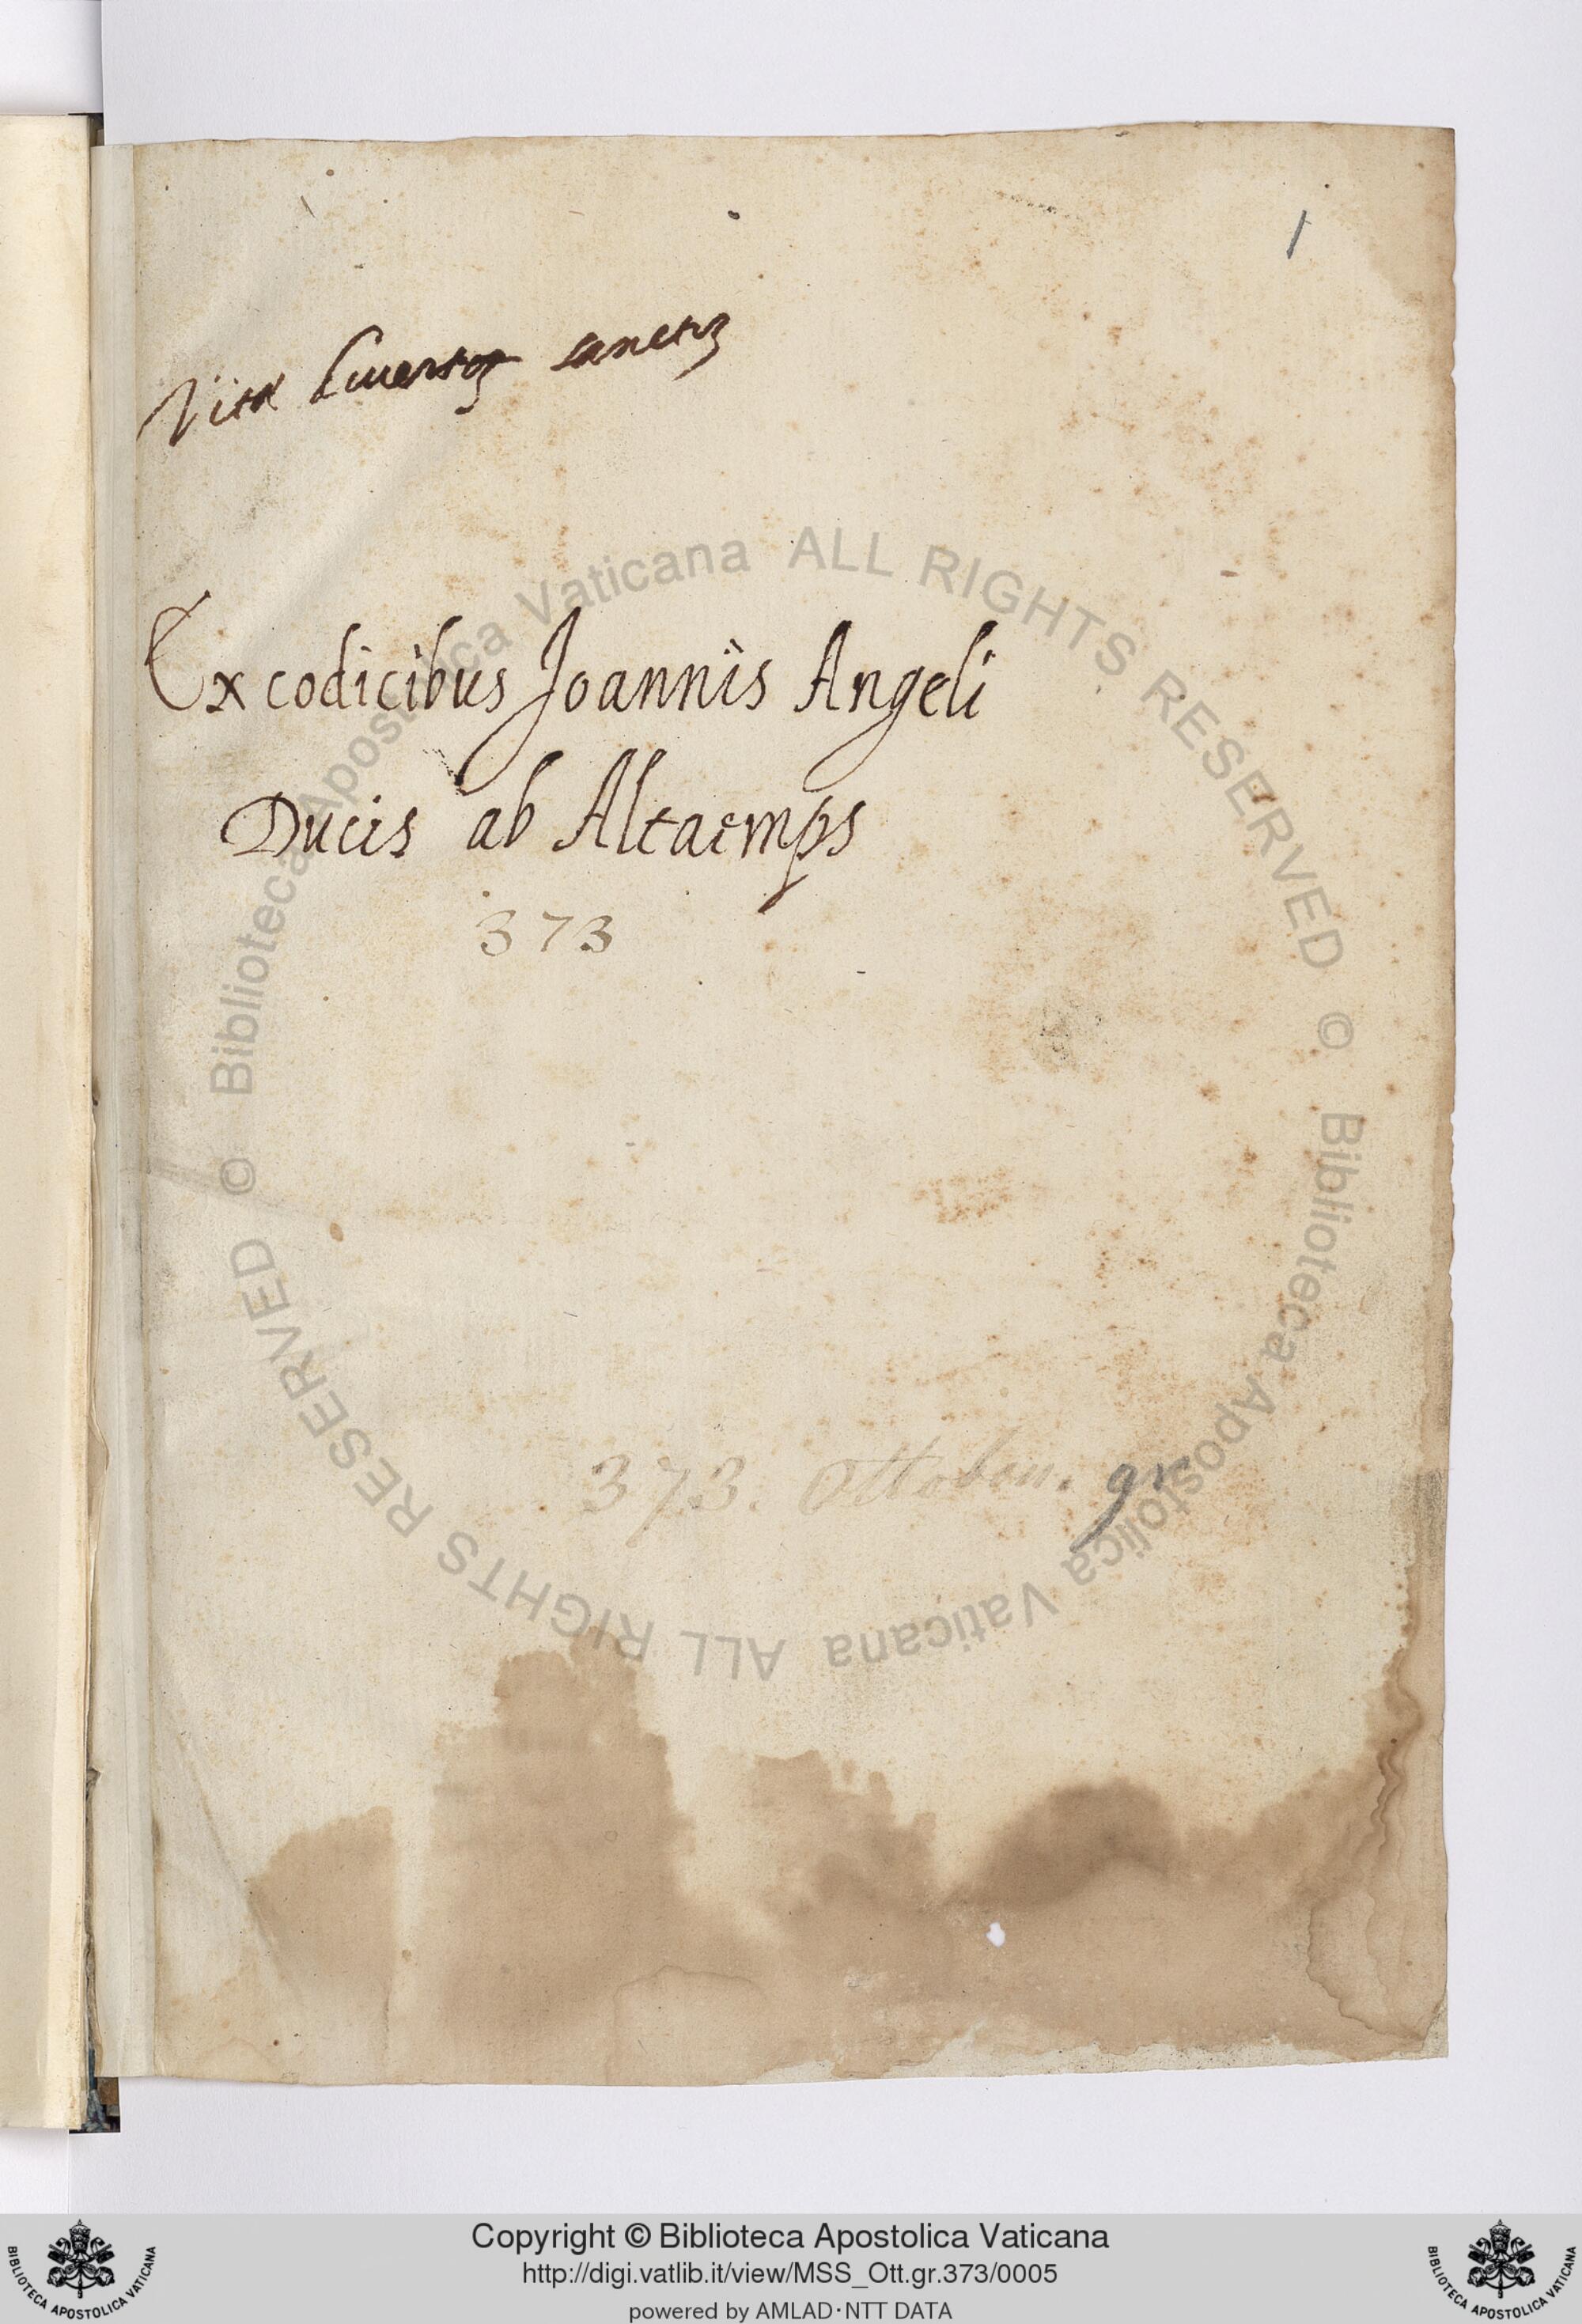 1
Vitæ diuersoꝝ sanctoꝝ
Ex codicibus Joannis Angeli
Ducis ab Altaemps
373
373. Ottobon. gr.
© Biblioteca Apostolica Vaticana ALL RIGHTS RESERVED
© Biblioteca Apostolica Vaticana ALL RIGHTS RESERVED
Copyright © Biblioteca Apostolica Vaticana
http://digi.vatlib.it/view/MSS_Ott.gr.373/0005
powered by AMLAD·NTT DATA
BIBLIOTECA APOSTOLICA VATICANA
BIBLIOTECA APOSTOLICA VATICANA